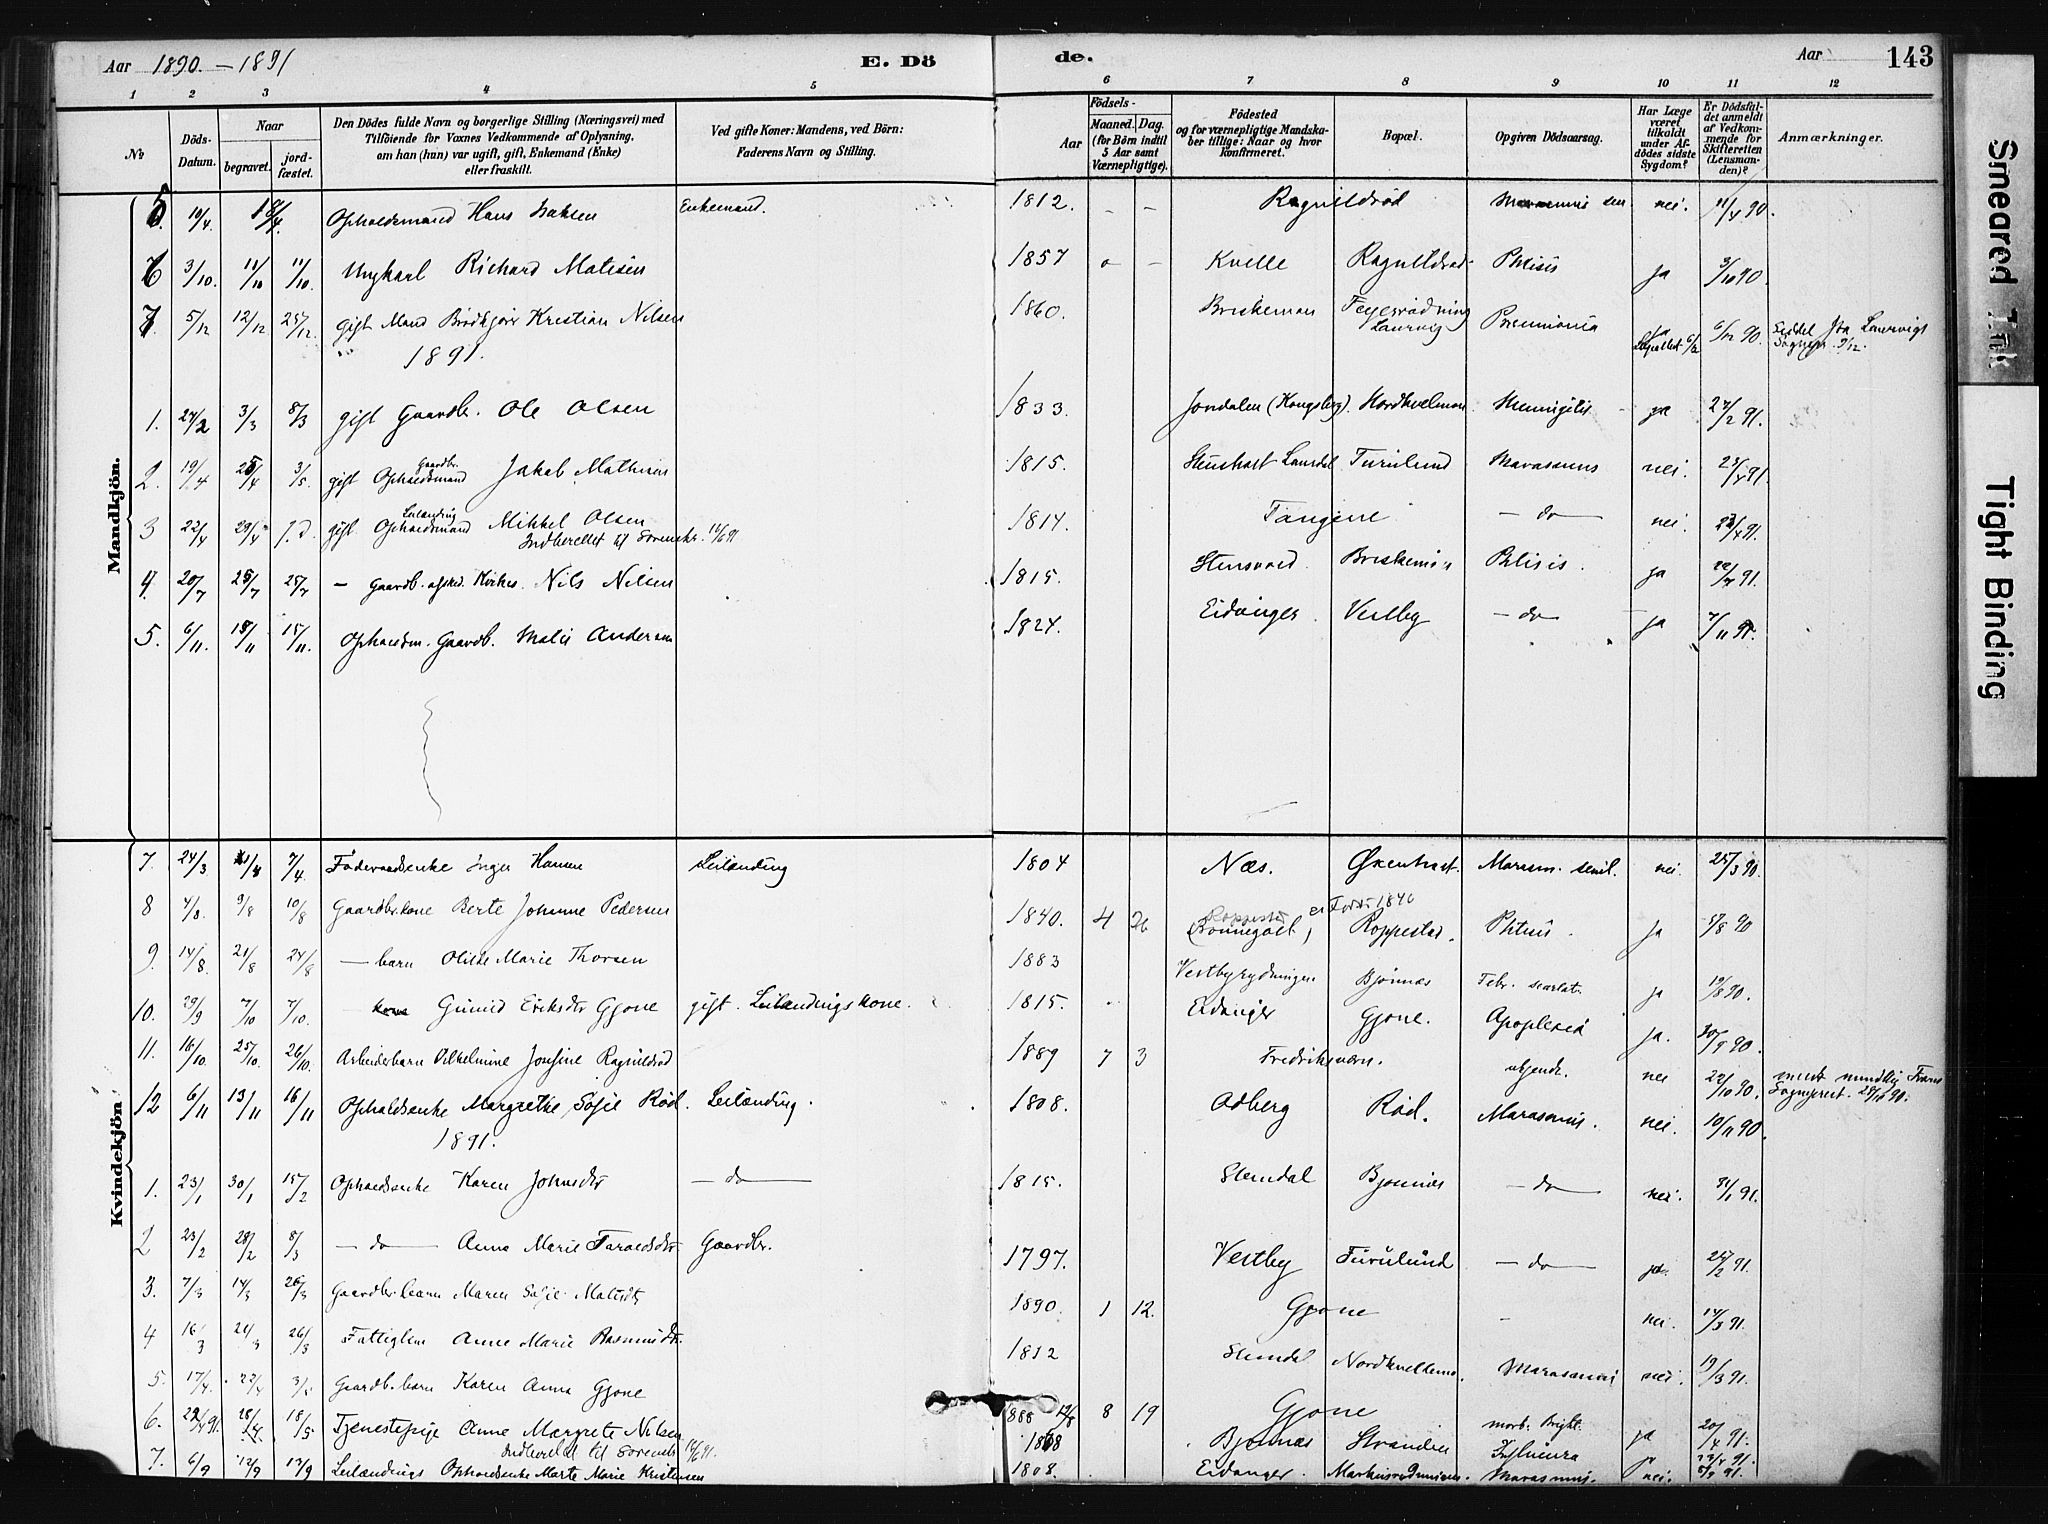 Aar 1890. - 1891 E. Dö de. Aar 143
1 2 3 4 5 6 7 8 9 10 11 12
No
Döds-Datum.
Naar
begravet.
jord-fæstet.
Den Dödes fulde Navn og borgerlige Stilling (Næringsvei) med
Tilföiende for Voxnes Vedkommende af Oplysning,
om han (hun) var ugift, gift, Enkemand (Enke)
eller fraskilt.
Ved gifte Koner: Mandens, ved Börn:
Faderens Navn og Stilling.
Födsels-
Aar
Maaned. Dag.
(for Börn indtil
5 Aar samt
Værnepligtige).
Födested
og for værnepligtige Mandska-
ber tillige: Naar og hvor
konfirmeret.
Bopæl.
Opgiven Dödsaarsag.
Har Læge
været
tilkaldt
under Af-
dödes sidste
Sygdom?
Er Dödsfal-
det anmeldt
af Vedkom-
mende for
Skifteretten
(Lensman-
den)?
Anmærkninger.
Mandkjön.
5. 10/4 18/4 Opholdsmand Hans Isaksen Enkemand. 1812. - - Ragnildrød Marasmus sen nei. 11/4 90.
6 3/10. 11/10 11/10. Ungkarl Richard Matisen 1857 - Kvelle Ragnildrød Phtisis ja 3/10 90.
7 5/12 12/12 25/12. gift Mand Brødkjører Kristian Nilsen 1860. Briskemoen Laurvig Pneumonia 6/12 90. Seddel fra Laurvigs Sognepr. 9/12.
1891.
1. 27/2 3/3 8/3 gift Gaardbr. Ole Olsen 1833. Jondalen (Kongsberg). Nordkvelmoen Meningitis ja 27/2 91.
2. 19/4 25/4 3/5 gift Gaardbr. Opholdsmand Jakob Mathisen 1815. Laurdal Furulund Marasmus nei. 23/4 91.
3 22/4 29/4 j. d. gift Leilænding Opholdsmand Mikkel Olsen 1814. Tangene - do - nei. 23/4 91.
Indberettet til Sorenskr. 11/6 91
4. 20/7 25/7 25/7 - Gaardb. Nils Nilsen 1815. Stensvold Briskemoen Phtisis. ja 22/7 91.
5. 6/11. 15/11 15/11. Opholdsm. Gaardb. Matis Andersen 1824. Eidanger. Vestby - do - ja 7/11 91.
Kvindekjön
7. 24/3 7/4. Føderaadsenke Inger Hansen Leilænding 1804 Næs. Marasm. senil. nei. 25/3 90.
8 4/8. 9/8 10/8 Gaardbr.kone Berte Johanne Pedersen 1840. 4 26 Roppestad Roppestad. Phtisis. ja 5/8 90
9. 14/8. 21/8 24/8 - barn Olilde Marie Thorsen 1883 Vestbyrydningen Bjønnes Febr. scarlat. ja 19/8 90.
10. 29/9 7/10 7/10. Gunild Eriksdtr Gjone gift. Leilændingskone. 1815. Eidanger Gjone. Apoplexia ja. 30/9 90.
11. 16/10. 25/10. 26/10. Arbeiderbarn Vilhelmine Josefine Ragnildrød 1889 7 3 Fredriksværn. ubjendt. nei 22/10 90. meldt mundtlig Fredr. Sognepræst. 28/10 90.
12 6/11 13/11 16/11 Opholdsenke Margrethe Sofie Rød. Leilænding. 1808. Odberg Rød. Marasmus. nei. 10/11 90.
1891.
1. 23/1 30/1 15/2 Opholdsenke Karen Johnsdtr - do - 1815. Slemdal Bjønnes - do - nei. 31/1 91.
2 23/2 28/2 8/3 - do - Anna Marie Taraldsdtr. Gaardbr. 1797. Vestby Furulund - do - ja. 25/2 91.
3. 7/3 14/3 26/3 Gaardbr.barn Maren Sofie Matisdtr 1890. 1 12. Gjone - nei. 14/3 91.
4 16/3 21/3 26/3 Fattiglem Anne Marie Rasmusdtr. 1812 Slemdal Nordkvellemo. Marasmus nei. 19/3 91.
5. 17/4. 22/4 3/5 Gaardb.barn Karen Anna Gjone 1888 12/8 8 19 Gjone morb. Bright. ja 20/4 91.
6. 22/4 91. 28/4. 18/5 Tjenestepige Anne Margrete Nilsen 1868 Bjønnes Stranden Influenza ja 23/4 91.
Indberettet til Sorensk. 11/6 91.
7. 6/9 12/9 13/9 Leilændings Opholdsenke Marte Marie Kristensen 1808. Eidanger. Marasmus. nei. 8/9 91.
Smeared Ink
Tight Binding